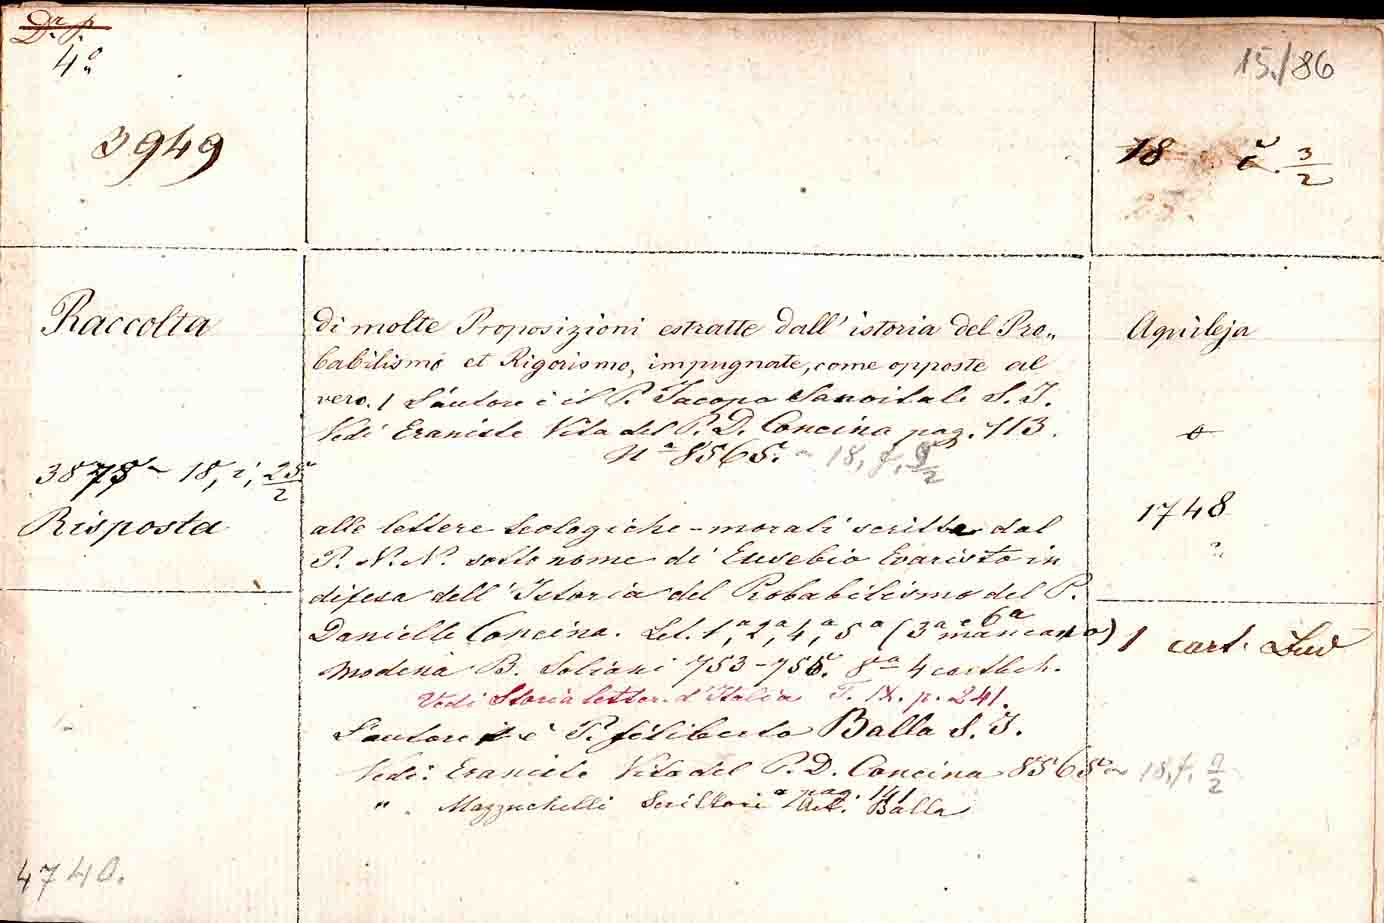 Dr. p.
4.º
15./86
3949
18 a. 3/2
Raccolta
di molte Proposizioni estratte dall' istoria del Pro„
babilismo et Rigorismo, impugnate, come opposte al
vero. / L'autore è il P. Jacopo Sanvitale S. J.
Vedi Eraniste Vita del P. D. Concina pag. 113.
Nº 8565. ~ 18, f, 9/2
Aquileja
1748
3875 ~ 18, i, 25/2
Risposta
alle lettere teologiche-morali scritte dal
P. N. N. sotto nome di Eusebio Evaristo in
difesa dell' Istoria del Probabilismo del P.
Danielle Concina. Let. 1ª, 2ª, 4ª, 5ª (3ª e 6ª mancano)
Modena B. Soliani 753-755. 8º 4 cart.
1 cart.
Vedi Storia letter. d'Italia T. IX. p. 241.
L'autore è P. filiberto Balla S. J.
Vedi: Eraniste Vita del P. D. Concina 8565 ~ 18, f, 9/2
pag. 141
„ Mazzuchelli Scrittori Art. Balla
4740.